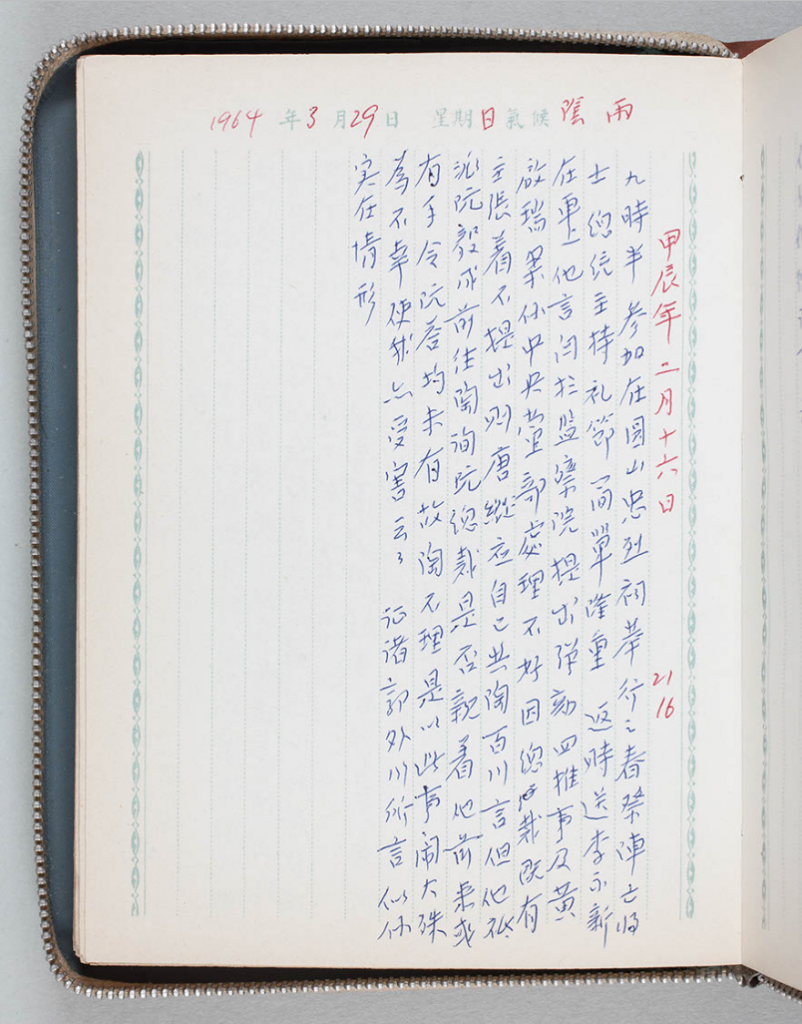 1964年3月29日 星期日 氣候 陰雨
甲辰年二月十六日 21 16
九時半參加在圓山忠烈祠舉行之春祭陣亡將
士 總統主持礼節簡單隆重 返時送李永新
在車上他言関於監察院提出彈劾四推事及黃
啟瑞案係中央党部處理不好因總裁既有
主張着不提出則唐縱應自己共陶百川言但他祇
派阮毅成前往陶詢阮總裁是否親着他前來或
有手令阮答均未有故陶不理是以此事闹大殊
為不幸使我亦受害云々 証諸郭外川所言似係
实在情形